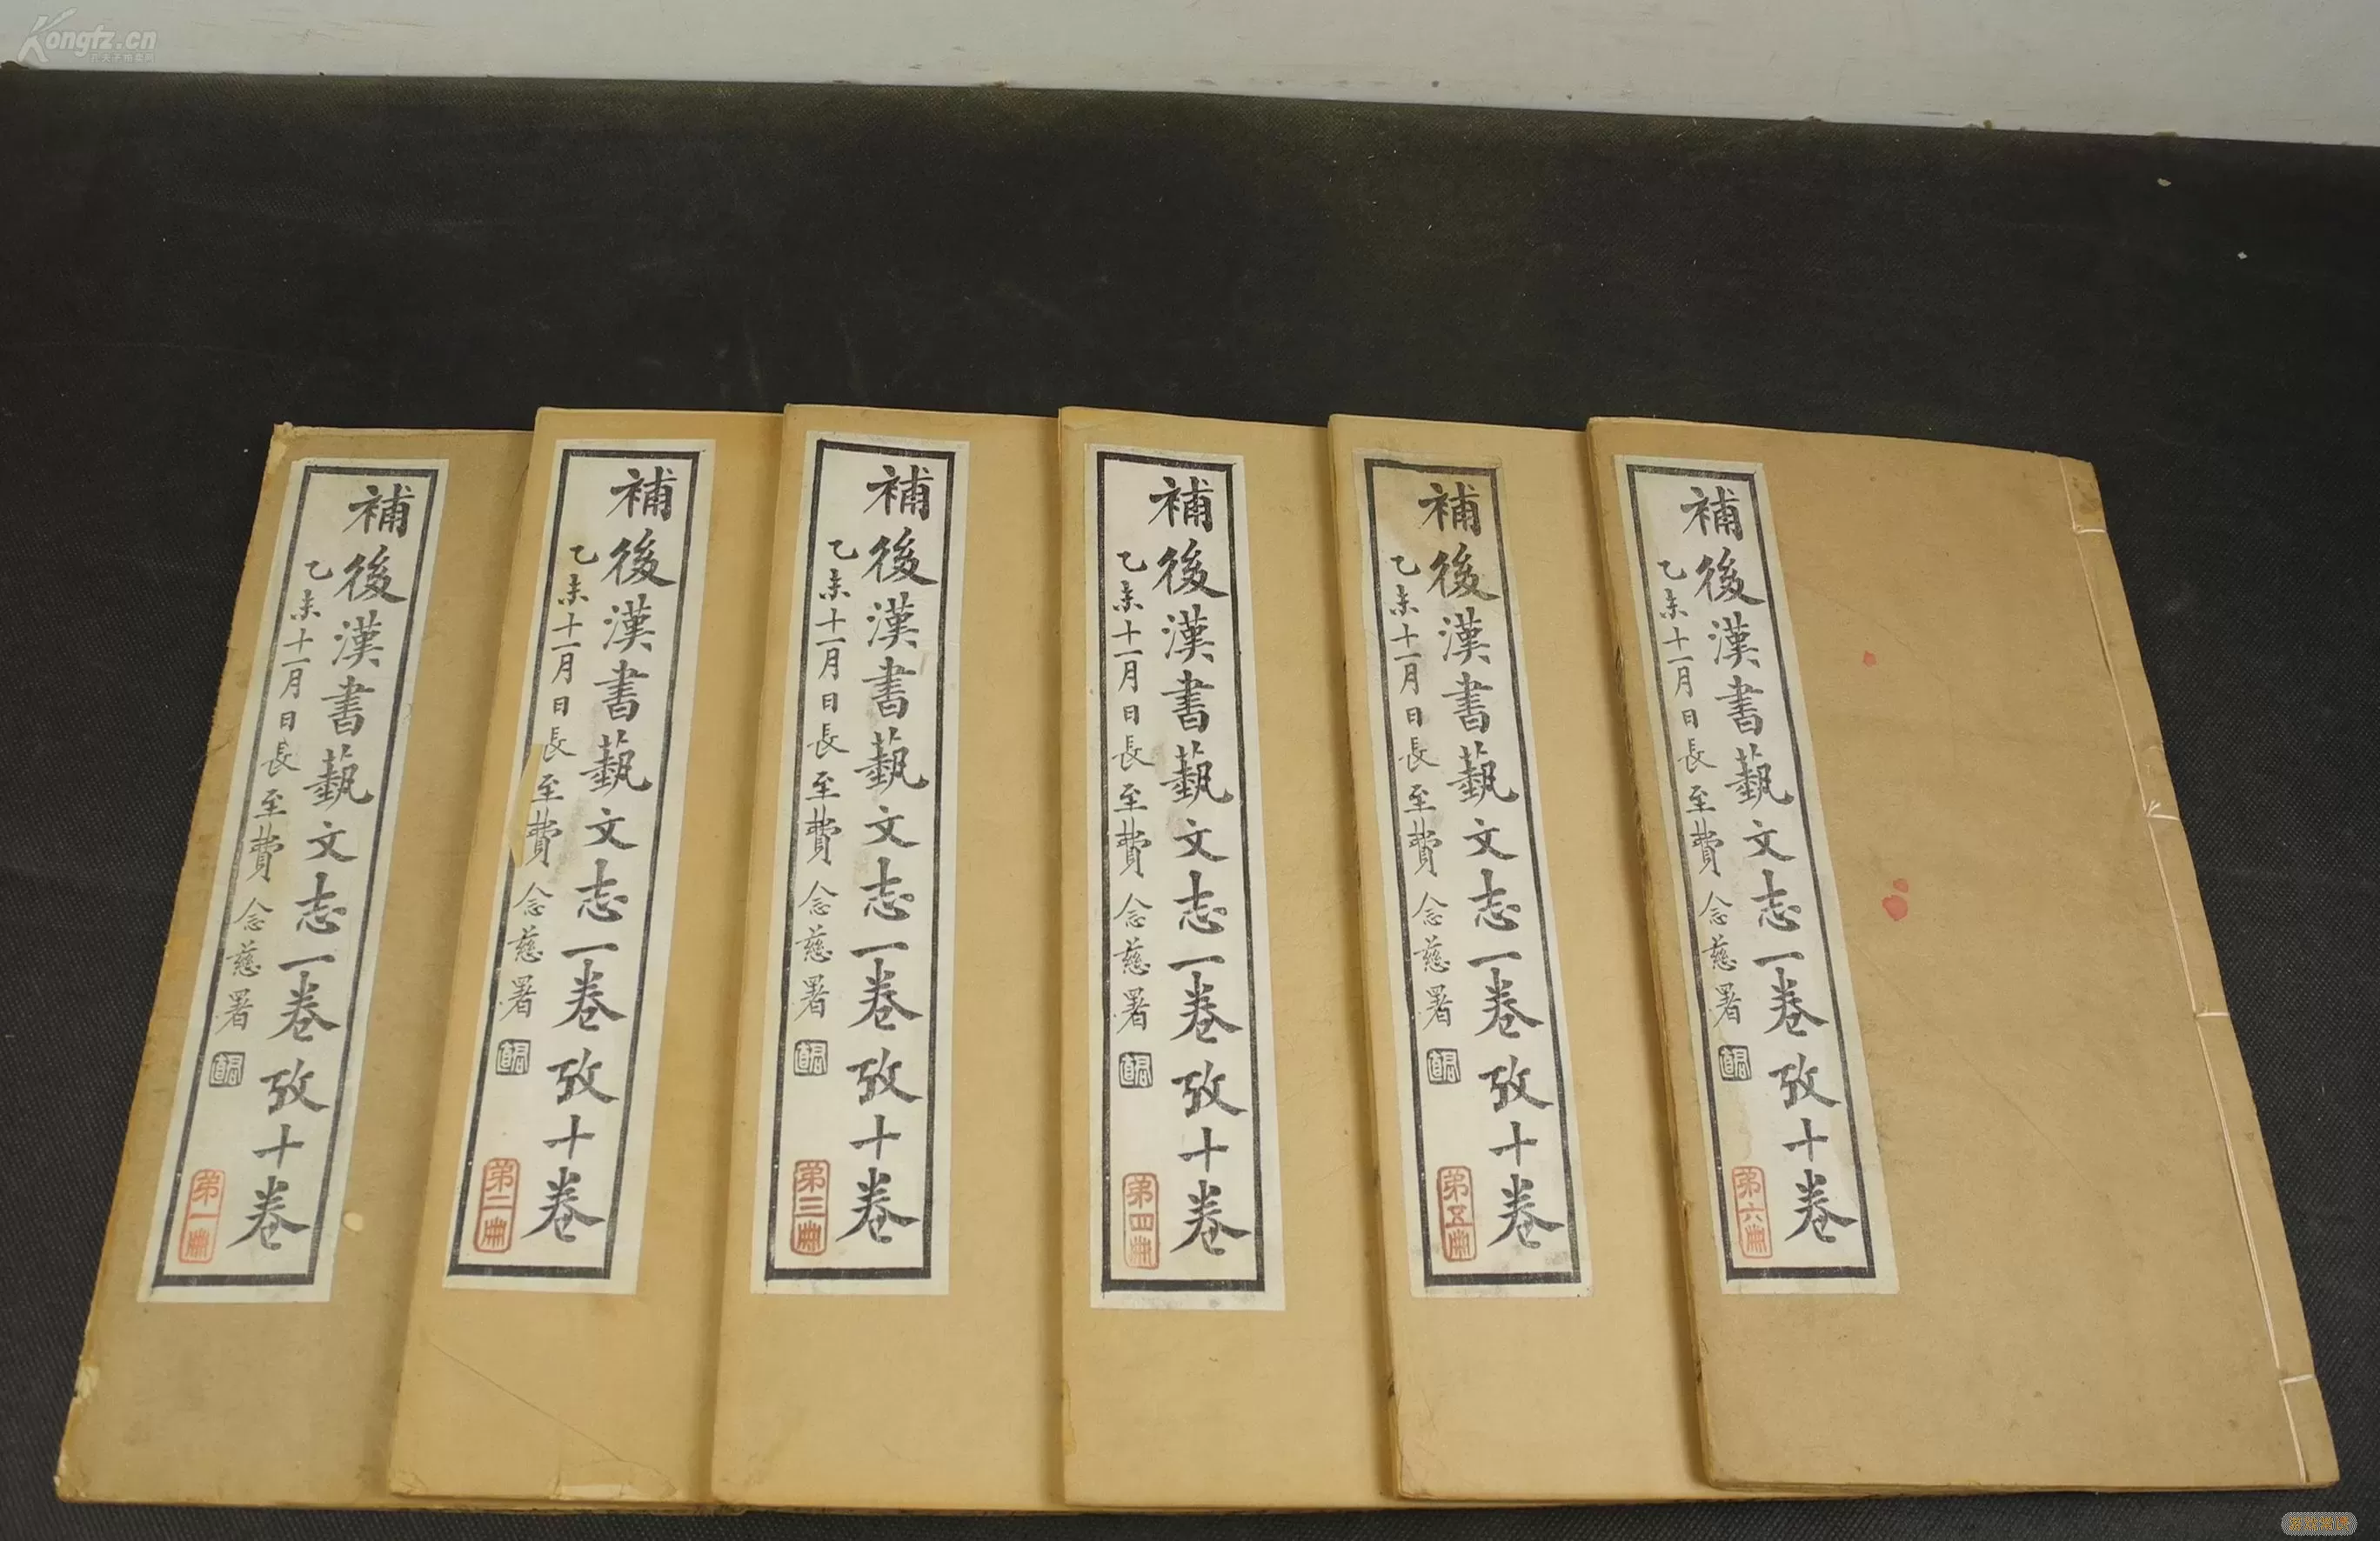 Kongfz.cn
補後漢書藝文志一卷攷十卷
乙未十一月日長至費念慈署
第一冊
補後漢書藝文志一卷攷十卷
乙未十一月日長至費念慈署
第二冊
補後漢書藝文志一卷攷十卷
乙未十一月日長至費念慈署
第三冊
補後漢書藝文志一卷攷十卷
乙未十一月日長至費念慈署
第四冊
補後漢書藝文志一卷攷十卷
乙未十一月日長至費念慈署
第五冊
補後漢書藝文志一卷攷十卷
乙未十一月日長至費念慈署
第六冊